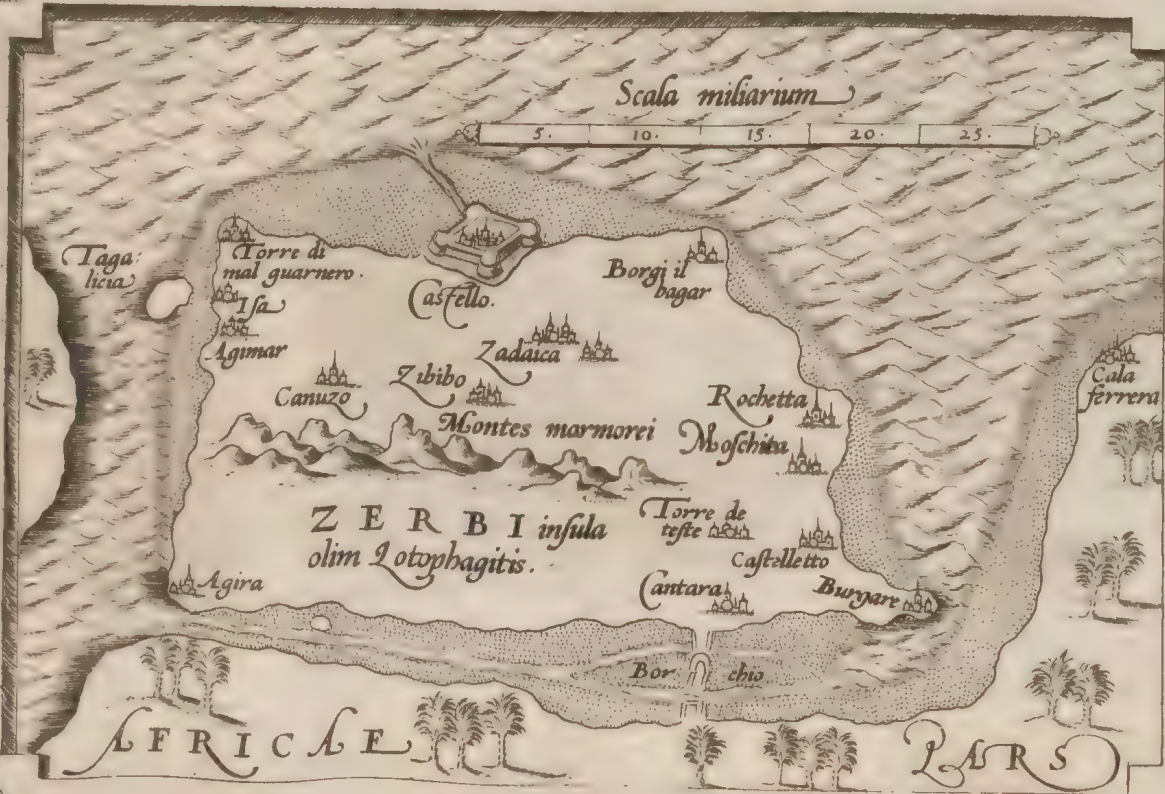 Scala miliarium
5. 10. 15. 20. 25.
Taga:
licia
Torre di
mal guarnero.
Isa
Agimar
Castello.
Borgi il
bagar
Zadaica
Canuzo
Zibibo
Montes marmorei
Rochetta
Moschita
Cala
ferrera
ZERBI insula
olim Lotophagitis.
Torre de
teste
Castelletto
Agira
Cantara
Burgare
Bor chio
AFRICAE PARS